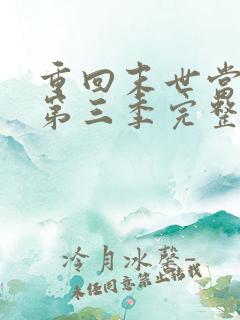 重回末世当
第三季完整
冷月冰磬-
未经同意禁止转载